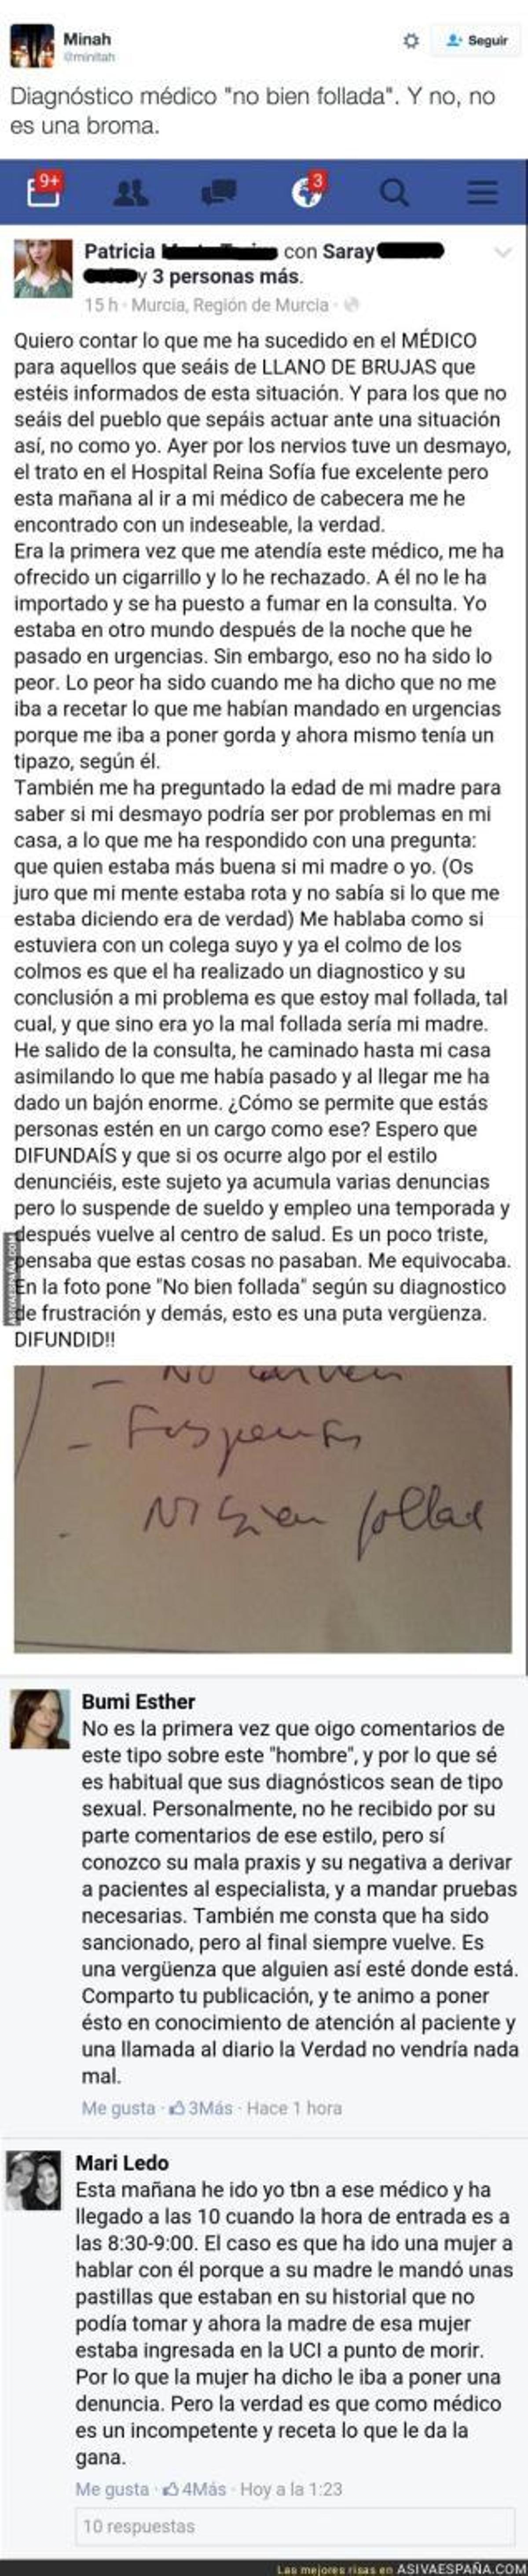 Minah
@minitah
Seguir
Diagnóstico médico "no bien follada". Y no, no
es una broma.
9+
3
Patricia
con Saray
y 3 personas más.
15 h · Murcia, Región de Murcia ·
Quiero contar lo que me ha sucedido en el MÉDICO
para aquellos que seáis de LLANO DE BRUJAS que
estéis informados de esta situación. Y para los que no
seáis del pueblo que sepáis actuar ante una situación
así, no como yo. Ayer por los nervios tuve un desmayo,
el trato en el Hospital Reina Sofía fue excelente pero
esta mañana al ir a mi médico de cabecera me he
encontrado con un indeseable, la verdad.
Era la primera vez que me atendía este médico, me ha
ofrecido un cigarrillo y lo he rechazado. A él no le ha
importado y se ha puesto a fumar en la consulta. Yo
estaba en otro mundo después de la noche que he
pasado en urgencias. Sin embargo, eso no ha sido lo
peor. Lo peor ha sido cuando me ha dicho que no me
iba a recetar lo que me habían mandado en urgencias
porque me iba a poner gorda y ahora mismo tenía un
tipazo, según él.
También me ha preguntado la edad de mi madre para
saber si mi desmayo podría ser por problemas en mi
casa, a lo que me ha respondido con una pregunta:
que quien estaba más buena si mi madre o yo. (Os
juro que mi mente estaba rota y no sabía si lo que me
estaba diciendo era de verdad) Me hablaba como si
estuviera con un colega suyo y ya el colmo de los
colmos es que el ha realizado un diagnostico y su
conclusión a mi problema es que estoy mal follada, tal
cual, y que sino era yo la mal follada sería mi madre.
He salido de la consulta, he caminado hasta mi casa
asimilando lo que me había pasado y al llegar me ha
dado un bajón enorme. ¿Cómo se permite que estás
personas estén en un cargo como ese? Espero que
DIFUNDAÍS y que si os ocurre algo por el estilo
denunciéis, este sujeto ya acumula varias denuncias
pero lo suspende de sueldo y empleo una temporada y
después vuelve al centro de salud. Es un poco triste,
pensaba que estas cosas no pasaban. Me equivocaba.
En la foto pone "No bien follada" según su diagnostico
de frustración y demás, esto es una puta vergüenza.
DIFUNDID!!
ASIVAESPAÑA.COM
- No
-
- No bien follad
Bumi Esther
No es la primera vez que oigo comentarios de
este tipo sobre este "hombre", y por lo que sé
es habitual que sus diagnósticos sean de tipo
sexual. Personalmente, no he recibido por su
parte comentarios de ese estilo, pero sí
conozco su mala praxis y su negativa a derivar
a pacientes al especialista, y a mandar pruebas
necesarias. También me consta que ha sido
sancionado, pero al final siempre vuelve. Es
una vergüenza que alguien así esté donde está.
Comparto tu publicación, y te animo a poner
ésto en conocimiento de atención al paciente y
una llamada al diario la Verdad no vendría nada
mal.
Me gusta · 3Más · Hace 1 hora
Mari Ledo
Esta mañana he ido yo tbn a ese médico y ha
llegado a las 10 cuando la hora de entrada es a
las 8:30-9:00. El caso es que ha ido una mujer a
hablar con él porque a su madre le mandó unas
pastillas que estaban en su historial que no
podía tomar y ahora la madre de esa mujer
estaba ingresada en la UCI a punto de morir.
Por lo que la mujer ha dicho le iba a poner una
denuncia. Pero la verdad es que como médico
es un incompetente y receta lo que le da la
gana.
Me gusta · 4Más · Hoy a la 1:23
10 respuestas
Las mejores risas en ASIVAESPAÑA.COM